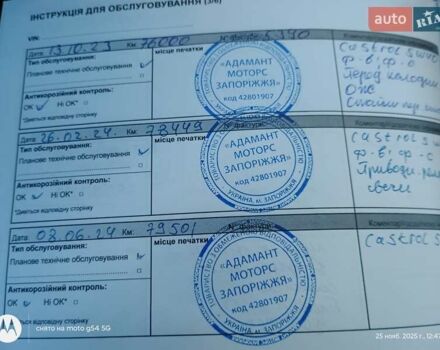 auto RIA
ІНСТРУКЦІЯ ДЛЯ ОБСЛУГОВУВАННЯ (3/6)
VIN:
Дата: 13.10.23 Км: 76000
Тип обслуговування:
Планове технічне обслуговування
Антикорозійний контроль:
ОК Ні ОК*
*Дивіться відповідну сторінку
місце печатки
«АДАМАНТ
МОТОРС
ЗАПОРІЖЖЯ»
код 42801907
Castrol
ф-в; ф-о
Перед колодки
ОЖ
Дата: 26.02.24. Км: 78449
Тип обслуговування:
Планове технічне обслуговування
Антикорозійний контроль:
ОК Ні ОК*
*Дивіться відповідну сторінку
місце печатки
ТОВАРИСТВО З ОБМЕЖЕНОЮ ВІДПОВІДАЛЬНІСТЮ
«АДАМАНТ
МОТОРС
ЗАПОРІЖЖЯ»
код 42801907
УКРАЇНА, м. ЗАПОРІЖЖЯ
Castrol
ф-в; ф-о
свечи
Дата: 03.06.24 Км: 79501
Тип обслуговування:
Планове технічне обслуговування
Антикорозійний контроль:
ОК Ні ОК*
*Дивіться відповідну сторінку
місце печатки
ТОВАРИСТВО З ОБМЕЖЕНОЮ ВІДПОВІДАЛЬНІСТЮ
«АДАМАНТ
МОТОРС
ЗАПОРІЖЖЯ»
код 42801907
УКРАЇНА, м. ЗАПОРІЖЖЯ
Castrol
снято на moto g54 5G
25 нояб. 2025 г., 12:47